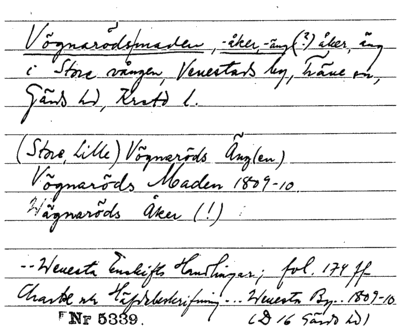 Vögnarödsmaden, -åker, -äng (?) åker, äng
i Stora vången, Venestads by, Träne sn,
Gärds hd, Krstd l.
(Store, Lille) Vögnaröds Äng(en)
Vögnaröds Maden 1809-10.
Wägnaröds Åker (!)
-- Wenesta Enskifts Handlingar; fol. 174 ff
Charte och Häfdebeskrifning... Wenesta By.. 1809-10.
Nr 5339. (D 16 Gärds hd)